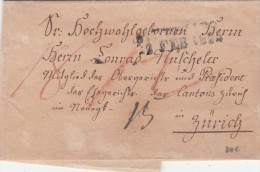 Sr. Hochwohlgeboren Herrn
2 FEB
Herrn Conrad Nüscheler
Mitglied des Obergerichts und Präsident
des Ehegerichts des Cantons Zürich
im
13
in
Zürich